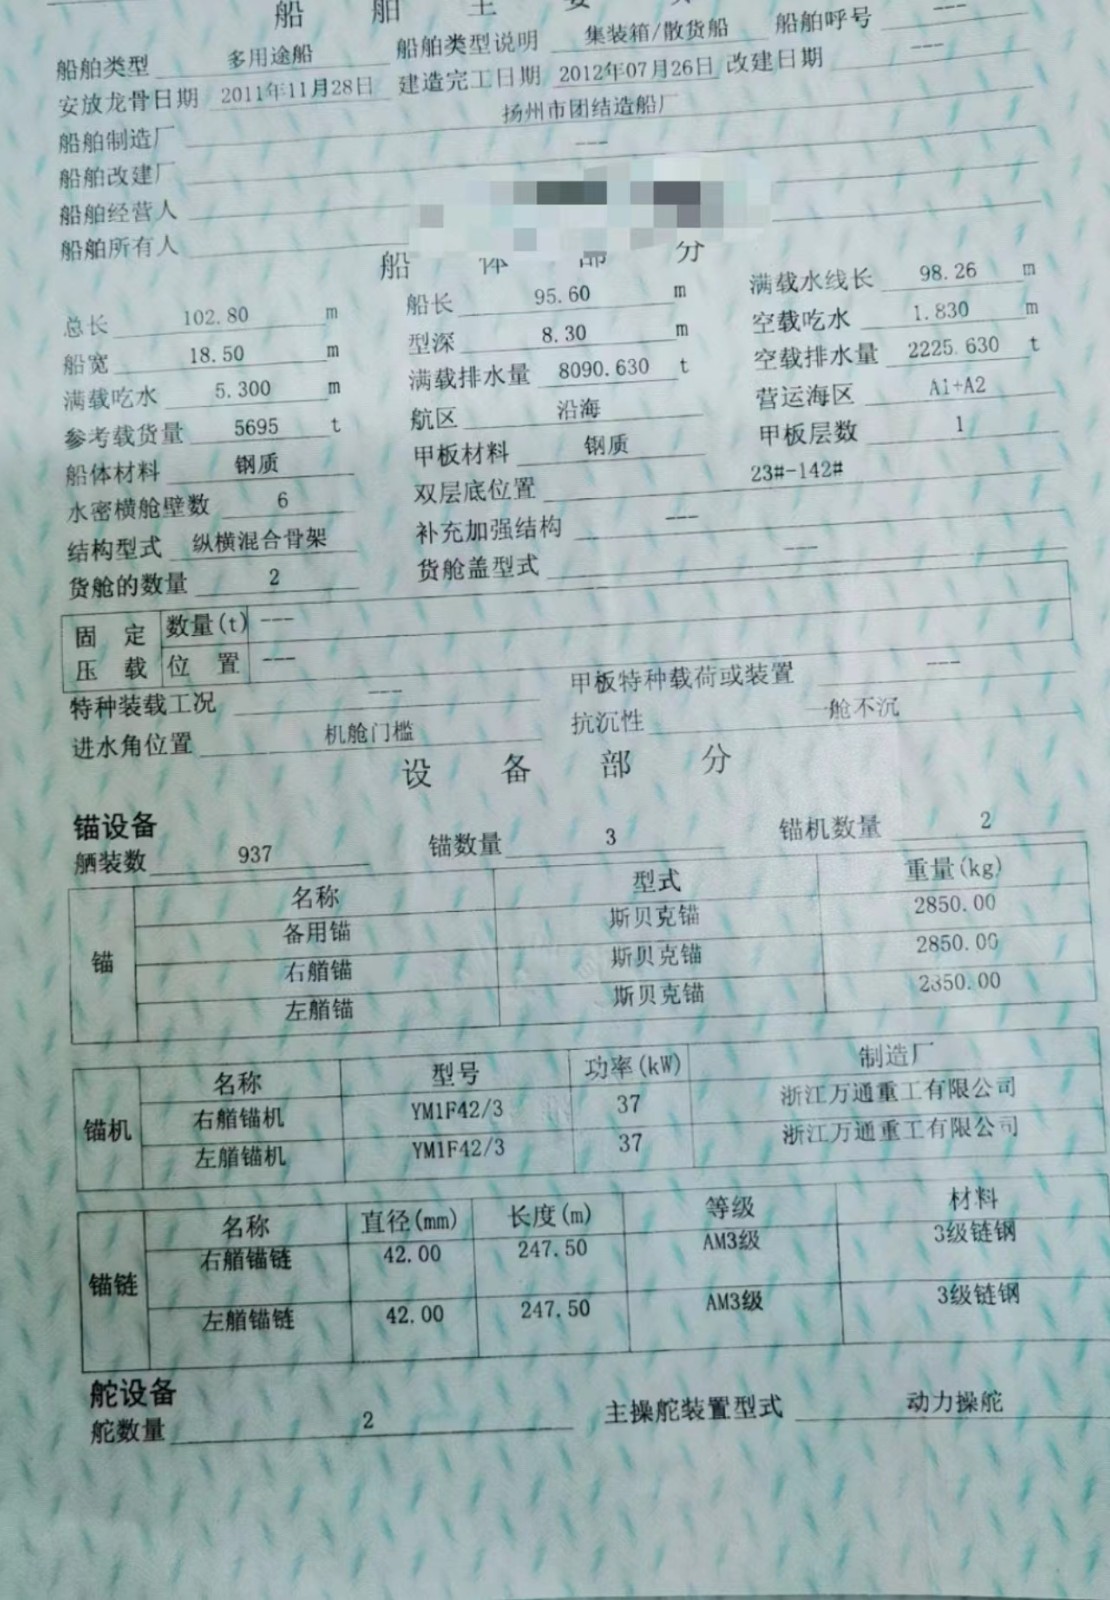 船 舶 主 要
船舶类型 多用途船 船舶类型说明 集装箱/散货船 船舶呼号 ---
安放龙骨日期 2011年11月28日 建造完工日期 2012年07月26日 改建日期 ---
船舶制造厂 扬州市团结造船厂
船舶改建厂 ---
船舶经营人
船舶所有人
船 体 部 分
总长 102.80 m 船长 95.60 m 满载水线长 98.26 m
船宽 18.50 m 型深 8.30 m 空载吃水 1.830 m
满载吃水 5.300 m 满载排水量 8090.630 t 空载排水量 2225.630 t
参考载货量 5695 t 航区 沿海 营运海区 A1+A2
船体材料 钢质 甲板材料 钢质 甲板层数 1
水密横舱壁数 6 双层底位置 23#-142#
结构型式 纵横混合骨架 补充加强结构 ---
货舱的数量 2 货舱盖型式 ---
固 定 数量(t) ---
压 载 位 置 ---
特种装载工况 --- 甲板特种载荷或装置 ---
进水角位置 机舱门槛 抗沉性 一舱不沉
设 备 部 分
锚设备
舾装数 937 锚数量 3 锚机数量 2
名称 型式 重量(kg)
锚
备用锚 斯贝克锚 2850.00
右艏锚 斯贝克锚 2850.00
左艏锚 斯贝克锚 2850.00
名称 型号 功率(kW) 制造厂
锚机
右艏锚机 YM1F42/3 37 浙江万通重工有限公司
左艏锚机 YM1F42/3 37 浙江万通重工有限公司
名称 直径(mm) 长度(m) 等级 材料
锚链
右艏锚链 42.00 247.50 AM3级 3级链钢
左艏锚链 42.00 247.50 AM3级 3级链钢
舵设备
舵数量 2 主操舵装置型式 动力操舵